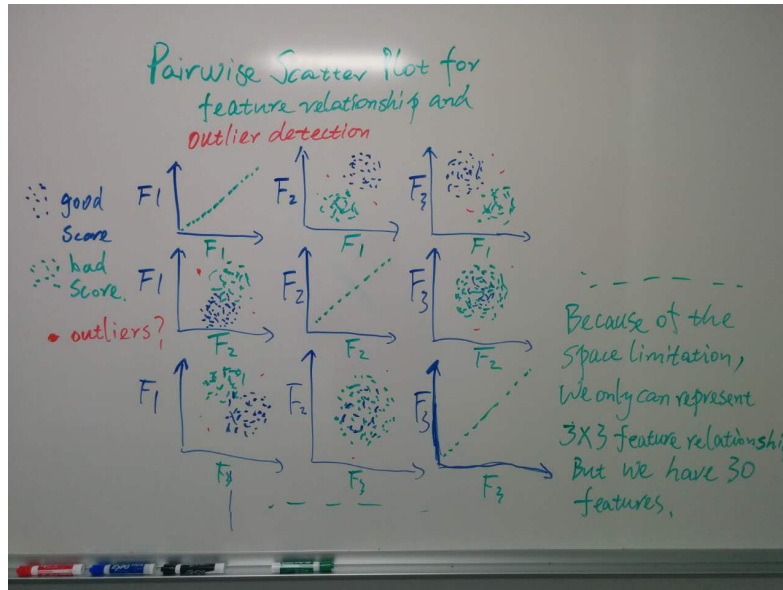 Pairwise Scatter Plot for
feature relationship and
outlier detection
good
score
bad
score.
• outliers?
F1
F1
F2
F1
F3
F1
F1
F2
F2
F2
F3
F2
F1
F3
F2
F3
F3
F3
Because of the
space limitation,
We only can represent
3X3 feature relationshi
But we have 30
features.